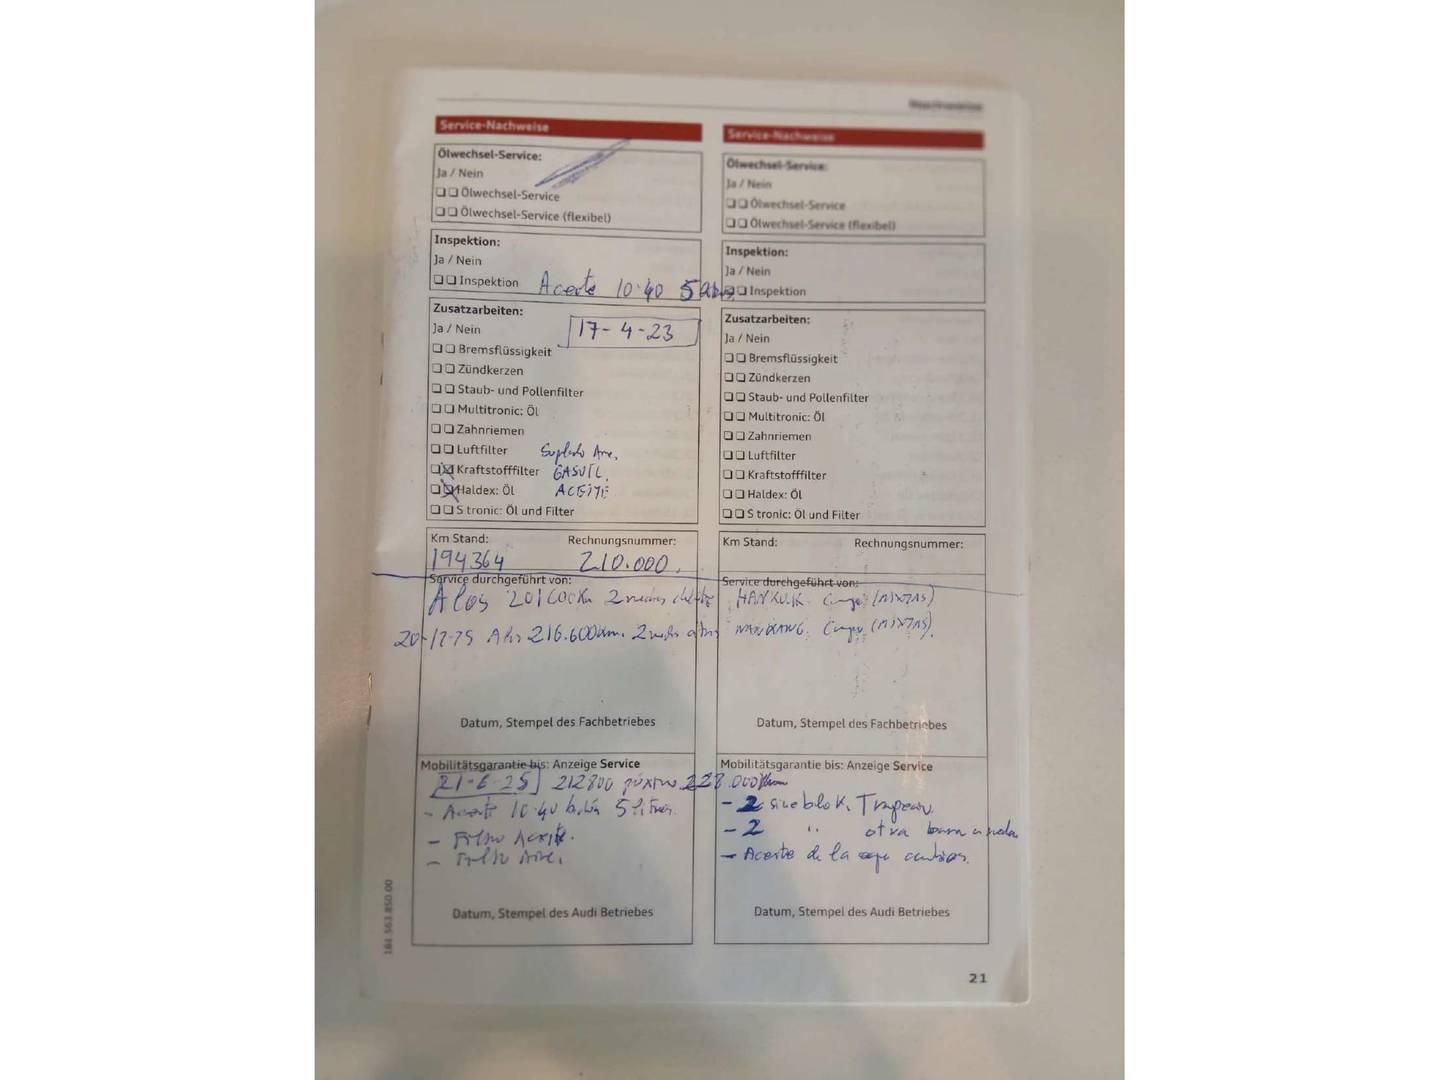 Service-Nachweise
Ölwechsel-Service:
Ja / Nein
Ölwechsel-Service
Ölwechsel-Service (flexibel)
Inspektion:
Ja / Nein
Inspektion Aceite 10-40 5
Zusatzarbeiten:
Ja / Nein 17-4-23
Bremsflüssigkeit
Zündkerzen
Staub- und Pollenfilter
Multitronic: Öl
Zahnriemen
Luftfilter
Kraftstofffilter GASOIL.
Haldex: Öl ACEITE
S tronic: Öl und Filter
Km Stand: Rechnungsnummer:
194364 210.000.
Service durchgeführt von:
A los 2 ruedas
20-12-25 A los 216.600km. 2
Datum, Stempel des Fachbetriebes
Mobilitätsgarantie bis: Anzeige Service
21-6-25 212800 próximo 228.000
- Aceite 10-40 5 litros.
- Filtro Aceite.
- Filtro Aire.
Datum, Stempel des Audi Betriebes
181.563.850.00
Service-Nachweise
Ölwechsel-Service:
Ja / Nein
Ölwechsel-Service
Ölwechsel-Service (flexibel)
Inspektion:
Ja / Nein
Inspektion
Zusatzarbeiten:
Ja / Nein
Bremsflüssigkeit
Zündkerzen
Staub- und Pollenfilter
Multitronic: Öl
Zahnriemen
Luftfilter
Kraftstofffilter
Haldex: Öl
S tronic: Öl und Filter
Km Stand: Rechnungsnummer:
Service durchgeführt von:
HANKOOK (MIXTAS)
NANKANG. (MIXTAS).
Datum, Stempel des Fachbetriebes
Mobilitätsgarantie bis: Anzeige Service
- 2 sineblok.
- 2 " otra
- Aceite de la
Datum, Stempel des Audi Betriebes
21